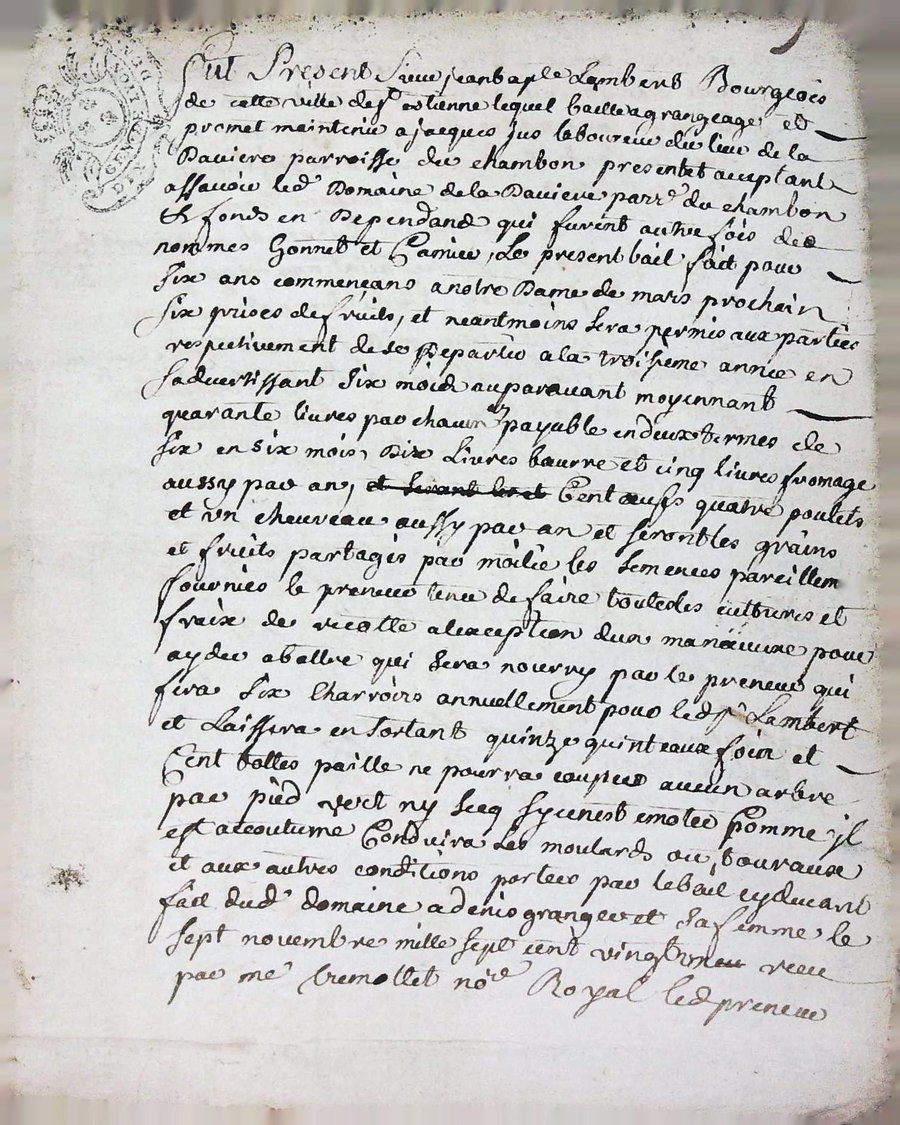 GENERALITE DE
Fut Present Sieur jean baple Lambert Bourgeois
de cette ville de St estienne lequel baille a grangeage et
promet maintenir a jacques jus laboureur du lieu de la
Daviere parroisse du chambon present et acceptant
assavoir led Domaine de la Daviere parre du chambon
& fonds en Dependand qui furent autrefois des
nommes Gonnet et Garnier, Le present bail fait pour
six ans commençans a notre Dame de mars prochain
six prises de fruits, et neantmoins sera permis aux parties
respectivement de se Departir a la troisieme année en
sadvertissant six mois auparavant moyennant
quarante livres par chacun an payable en deux termes de
six en six mois, Dix Livres beurre et cinq livres fromage
aussy par an, Cent oeufs quatre poulets
et un cheureau aussy par an et seront les grains
et fruits partagés par moitié les semences pareillem
fournies le preneur tenu de faire toutes les cultures et
fraix de recolte a lexception dun manoeuvre pour
ayder a battre qui sera nourry par le preneur qui
fera six Charroirs annuellement pour led Sr Lambert
et Laissera en sortant quinze quinteaux foin et
Cent balles paille ne pourra couper aucun arbre
par pied vert ny secq sy cenest emoter Comme jl
est accoutume Conduira les moulards ou touraux
et aux autres conditions portees par le bail cy devant
fait dud domaine a denis granger et sa femme le
sept novembre mille sept cent vingt receu
par me tremollet nore Royal led preneur